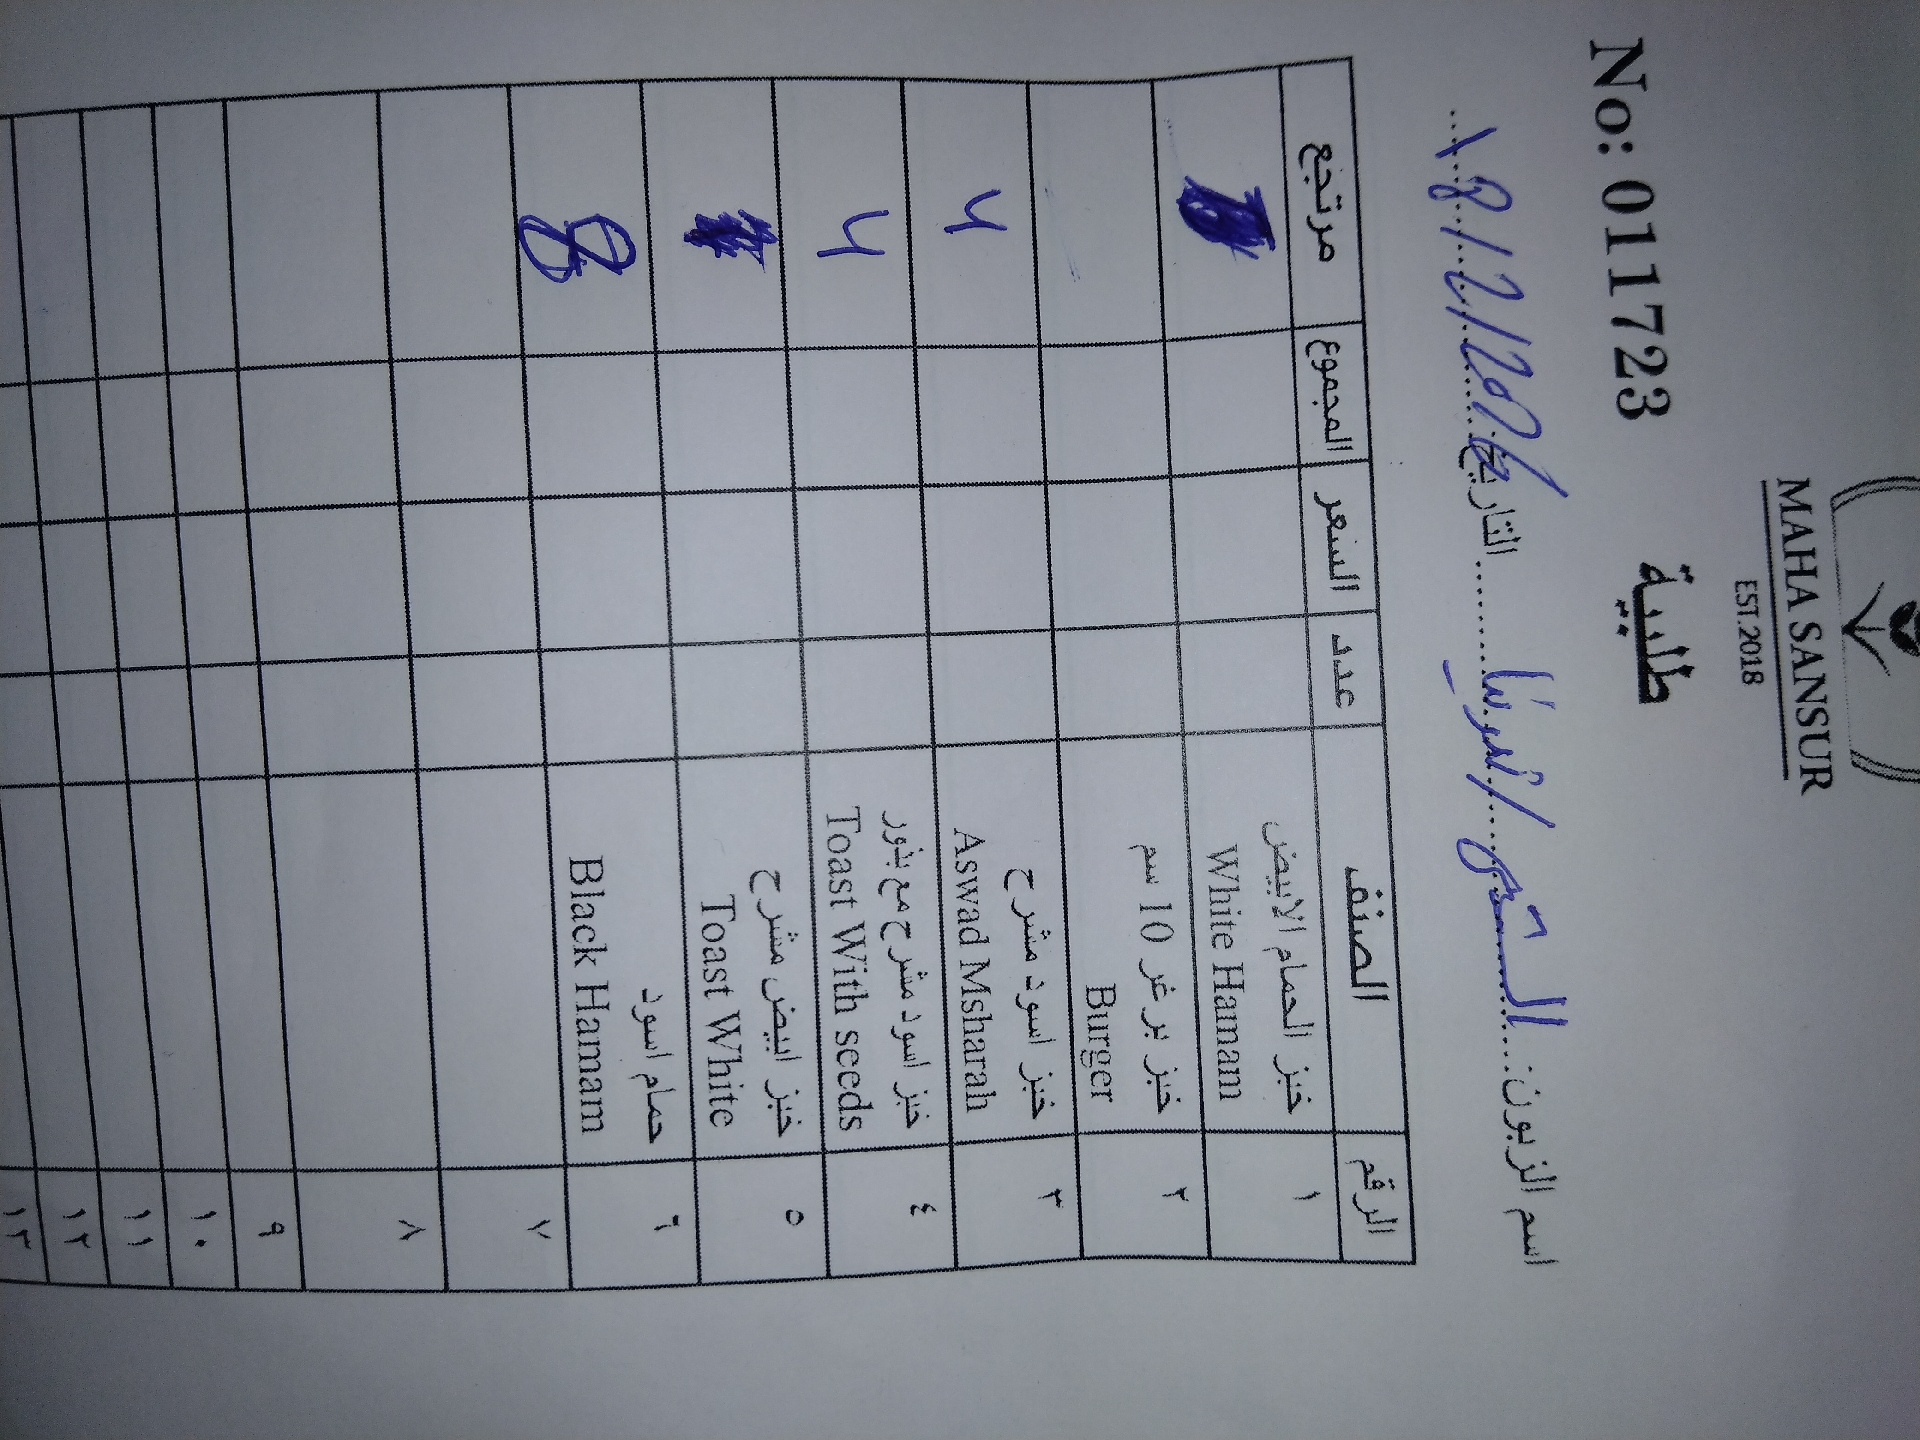 MAHA SANSUR
EST.2018
طلبية
No: 011723
اسم الزبون: التاريخ 18/2/2026
الرقم الصنف عدد السعر المجموع مرتجع
١ خبز الحمام الابيض
White Hamam
٢ خبز برغر 10 سم
Burger
٣ خبز اسود مشرح
Aswad Msharah
٤ خبز اسود مشرح مع بذور
Toast With seeds
٥ خبز ابيض مشرح
Toast White
٦ حمام اسود
Black Hamam 8
٧
٨
٩
١٠
١١
١٢
١٣